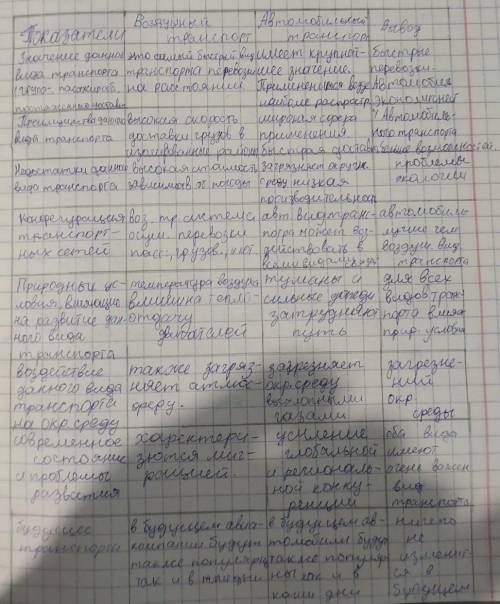 Показатели
Воздушный транспорт
Автомобильный транспорт
Вывод
Значение данного вида транспорта (грузо- пассажироб.
это самый быстрый вид транспорта перевозки на расстояния
имеет крупнейшее значение. Применяются везде
быстрые перевозки. Автомобиль экономичней
Преимущества данного вида транспорта
высокая скорость доставки грузов в изолированные районы
широкая сфера применения быстрая доставка
У Автомобильного транспорта больше возможностей.
Недостатки данного вида транспорта
высокая стоимость зависимость от погоды
загрязняет окруж. среду низкая производительность
проблемы экологии
Конфигурация транспортных сетей
воз. тр система, осущ. перевозки пасс., грузов,
авт. вид транспорта может взаимодействовать в всеми видами
автомобиль лучше чем воздуш. вид транспорта
Природные условия, влияющие на развитие данного вида транспорта
температура воздуха влияние теплоотдачу двигателей
туманы и сильные дожди затрудняют путь
для всех видов транспорта влияет прир. условия
воздействие данного вида транспорта на окр. среду
также загрязняет атмосферу.
загрезняет окр. среду выхлопными газами
загрезнений окр. среды
современное состояние и проблемы развития
характеризуются миграцией.
усиление глобальной и региональной конкуренции
оба вида имеют очень важен вид транспорта
будущее транспорта
в будущем авиакомпании будут также популярны так и в
в будущем автомобили будут также популярны как и в наши дни
ничего не изменится в будущем